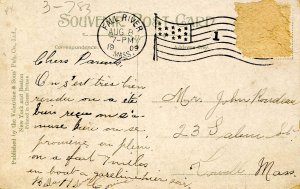 3-783
SOUVENIR POST CARD
FALL RIVER
AUG 8
7-PM
1909
MASS.
1
Correspondence
Published by the Valentine & Sons' Pub. Co., Ltd.,
New York and Boston
Chers Parents
On s'est très bien
rendu on a été
bien reçu on s'a-
muse bien on se
promène, en plein
on a fait 7 milles
en boat a gazeline hier soir
Mr. John Rondeau
23 Salem St
Lowell Mass.